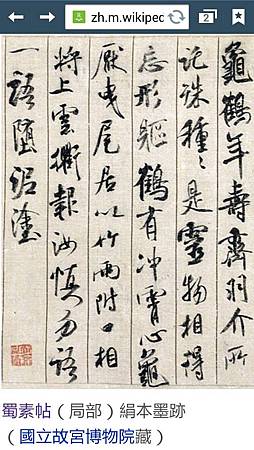 zh.m.wikipec
2
龜鶴年壽齊羽介所
託殊種〻是靈物相得
忘形軀鶴有沖霄心龜
厭曳尾居以竹兩附口相
將上雲衢報汝慎勿語
一語墮泥塗
蜀素帖（局部）絹本墨跡
（國立故宮博物院藏）